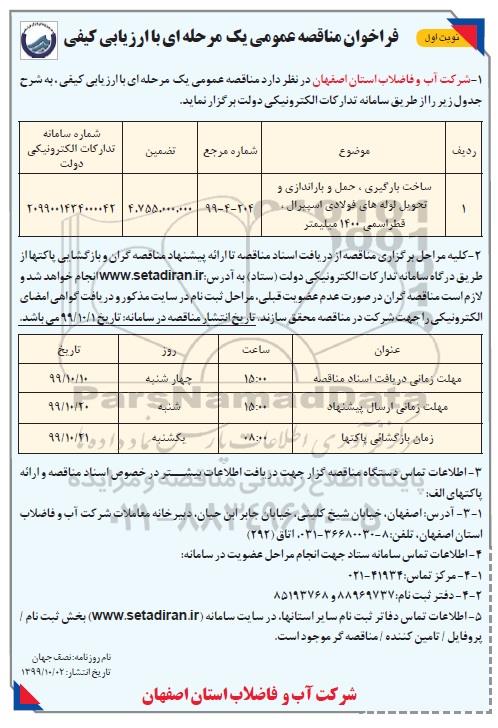 نوبت اول
فراخوان مناقصه عمومی یک مرحله ای با ارزیابی کیفی
۱-شرکت آب و فاضلاب استان اصفهان در نظر دارد مناقصه عمومی یک مرحله ای با ارزیابی کیفی، به شرح
جدول زیر را از طریق سامانه تدارکات الکترونیکی دولت برگزار نماید.
ردیف موضوع شماره مرجع تضمین شماره سامانه تدارکات الکترونیکی دولت
۱ ساخت بارگیری ، حمل و باراندازی و تحویل لوله های فولادی اسپیرال ، قطراسمی ۱۴۰۰ میلیمتر ۹۹-۴-۲۰۴ ۴.۷۵۵.۰۰۰.۰۰۰ ۲۰۹۹۰۰۱۴۳۴۰۰۰۰۴۲
۲-کلیه مراحل برگزاری مناقصه از دریافت اسناد مناقصه تا ارائه پیشنهاد مناقصه گران و بازگشایی پاکتها از
طریق درگاه سامانه تدارکات الکترونیکی دولت (ستاد) به آدرس:www.setadiran.ir انجام خواهد شد و
لازم است مناقصه گران در صورت عدم عضویت قبلی، مراحل ثبت نام در سایت مذکور و دریافت گواهی امضای
الکترونیکی را جهت شرکت در مناقصه محقق سازند. تاریخ انتشار مناقصه در سامانه: تاریخ ۹۹/۱۰/۱ می باشد.
عنوان ساعت روز تاریخ
مهلت زمانی دریافت اسناد مناقصه ۱۵:۰۰ چهار شنبه ۹۹/۱۰/۱۰
مهلت زمانی ارسال پیشنهاد ۱۵:۰۰ شنبه ۹۹/۱۰/۲۰
زمان بازگشائی پاکتها ۰۸:۰۰ یکشنبه ۹۹/۱۰/۲۱
۳-اطلاعات تماس دستگاه مناقصه گزار جهت دریافت اطلاعات بیشتر در خصوص اسناد مناقصه و ارائه
پاکتهای الف:
۳-۱- آدرس: اصفهان، خیابان شیخ کلینی، خیابان جابر ابن حیان، دبیرخانه معاملات شرکت آب و فاضلاب
استان اصفهان، تلفن:۸-۳۶۶۸۰۰۳۰-۰۳۱، اتاق (۲۹۲)
۴-اطلاعات تماس سامانه ستاد جهت انجام مراحل عضویت در سامانه:
۴-۱-مرکز تماس:۴۱۹۳۴-۰۲۱
۴-۲-دفتر ثبت نام: ۸۸۹۶۹۷۳۷ و ۸۵۱۹۳۷۶۸
۵-اطلاعات تماس دفاتر ثبت نام سایر استانها، در سایت سامانه (www.setadiran.ir) بخش ثبت نام /
پروفایل / تامین کننده / مناقصه گر موجود است.
نام روزنامه: نصف جهان
تاریخ انتشار: ۱۳۹۹/۱۰/۰۲
شرکت آب و فاضلاب استان اصفهان
ParsNamadData
پایگاه اطلاع رسانی مناقصه و مزایده
۰۲۱-۸۸۳۴۹۶۷۰-۵